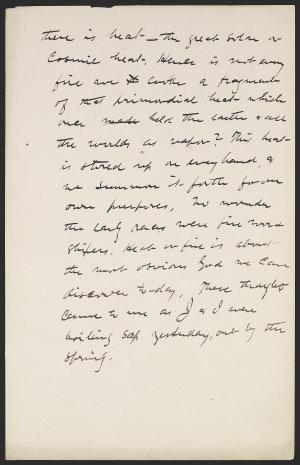 there is heat — the great solar or
Cosmic heat. Hence is not every
fire we a fragment
of that primordial heat which
once held the earth & all
the worlds as vapor? This heat
is stored up on every hand, &
we summon it forth for our
own purposes, No wonder
the early races were fire wor-
shipers, Heat or fire is about
the most obvious God we can
discover to-day, These thoughts
came to me as J & I were
boiling sap yesterday, out by the
Spring.